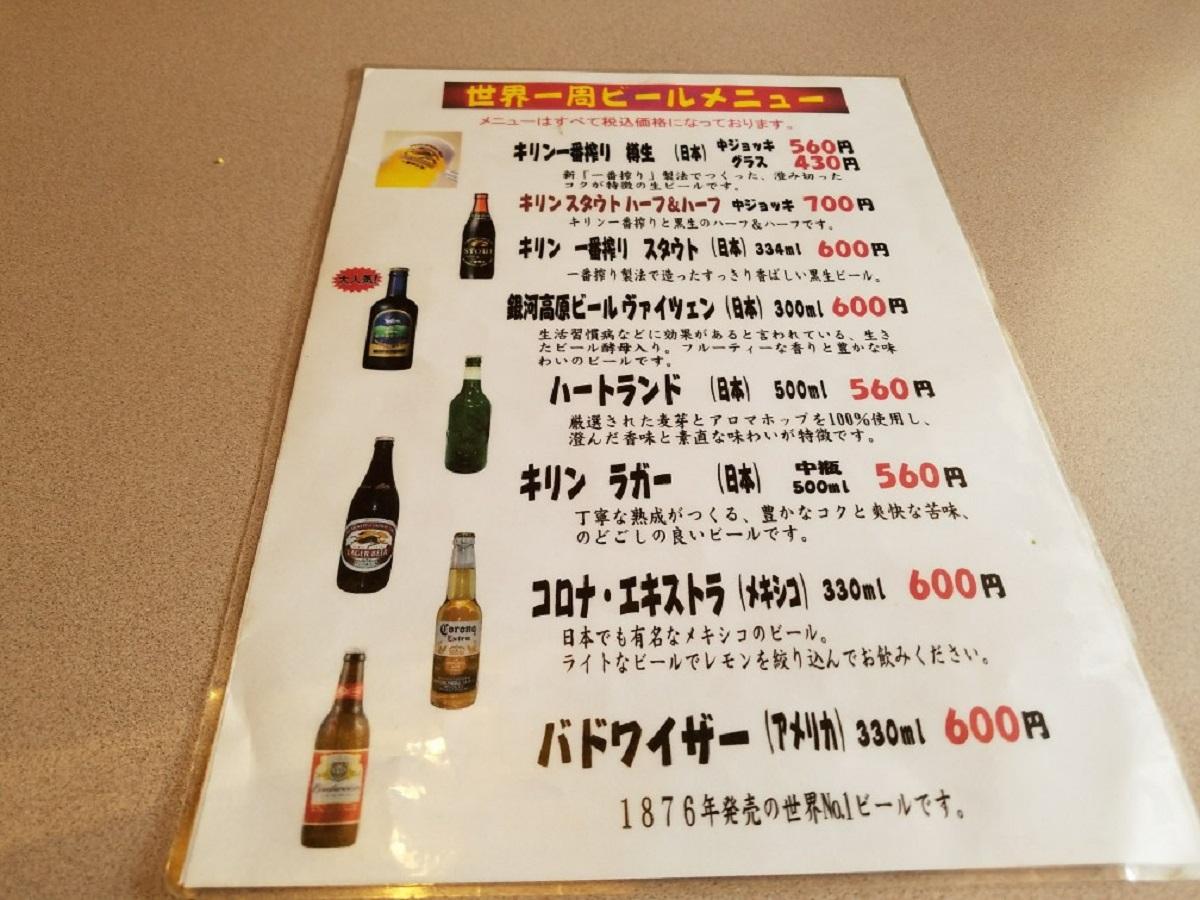 世界一周ビールメニュー
メニューはすべて税込価格になっております。
キリン一番搾り 樽生 (日本) 中ジョッキ 560円
グラス 430円
新『一番搾り』製法でつくった、澄み切った
コクが特徴の生ビールです。
キリン スタウト ハーフ&ハーフ 中ジョッキ 700円
キリン一番搾りと黒生のハーフ&ハーフです。
キリン 一番搾り スタウト (日本) 334ml 600円
一番搾り製法で造ったすっきり香ばしい黒生ビール。
大人気!
銀河高原ビール ヴァイツェン (日本) 300ml 600円
生活習慣病などに効果があると言われている、生き
たビール酵母入り。フルーティーな香りと豊かな味
わいのビールです。
ハートランド (日本) 500ml 560円
厳選された麦芽とアロマホップを100%使用し、
澄んだ香味と素直な味わいが特徴です。
キリン ラガー (日本) 中瓶 500ml 560円
丁寧な熟成がつくる、豊かなコクと爽快な苦味、
のどごしの良いビールです。
LAGER BEER
コロナ・エキストラ (メキシコ) 330ml 600円
日本でも有名なメキシコのビール。
ライトなビールでレモンを絞り込んでお飲みください。
Corona
Extra
バドワイザー (アメリカ) 330ml 600円
1876年発売の世界No.1ビールです。
Budweiser